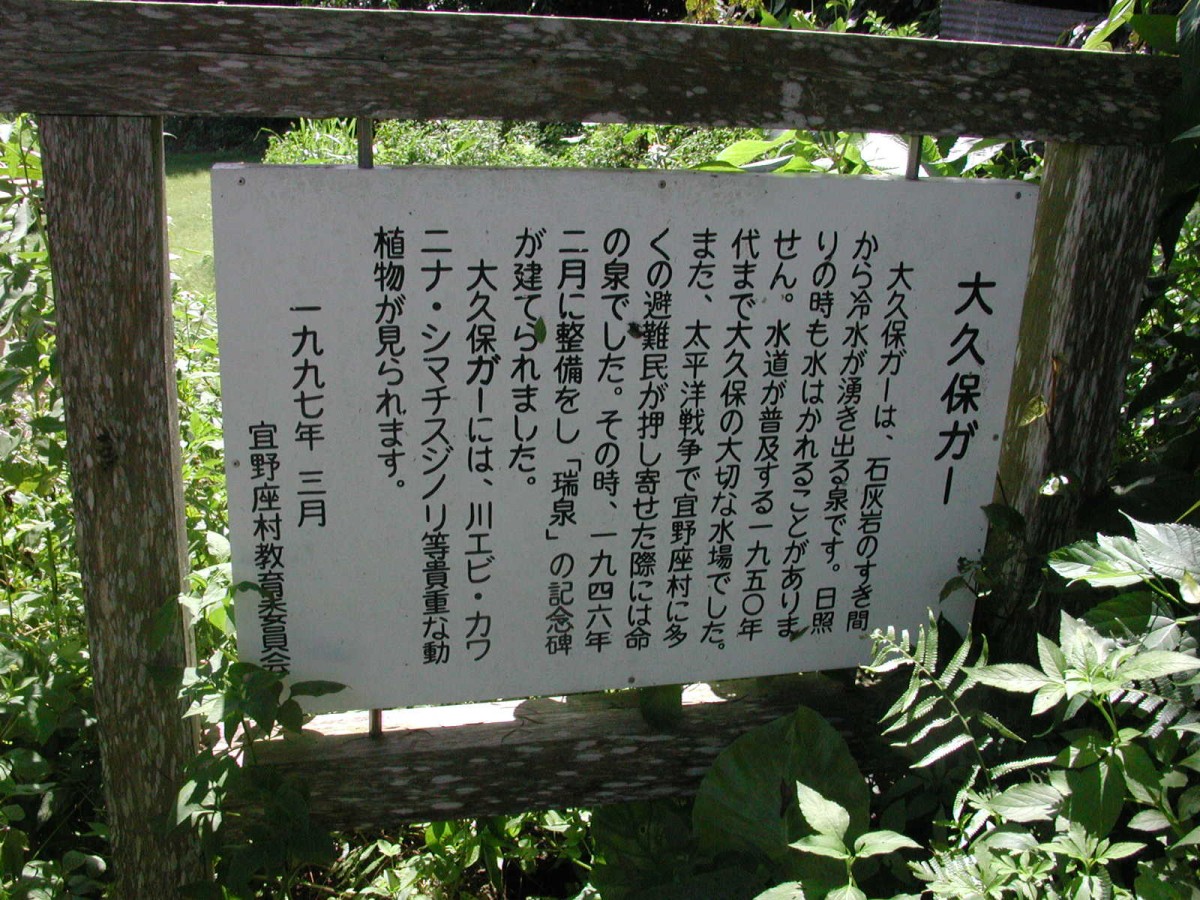 大久保ガー
大久保ガーは、石灰岩のすき間
から冷水が湧き出る泉です。日照
りの時も水はかれることがありま
せん。水道が普及する一九五〇年
代まで大久保の大切な水場でした。
また、太平洋戦争で宜野座村に多
くの避難民が押し寄せた際には命
の泉でした。その時、一九四六年
二月に整備をし「瑞泉」の記念碑
が建てられました。
大久保ガーには、川エビ・カワ
ニナ・シマチスジノリ等貴重な動
植物が見られます。
一九九七年 三月
宜野座村教育委員会